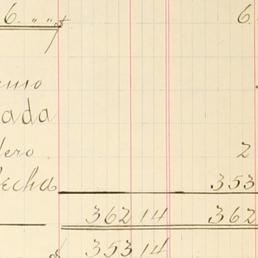 6. „ „ 6.
ada
dero 2
echa 353
362 14 362
353 14